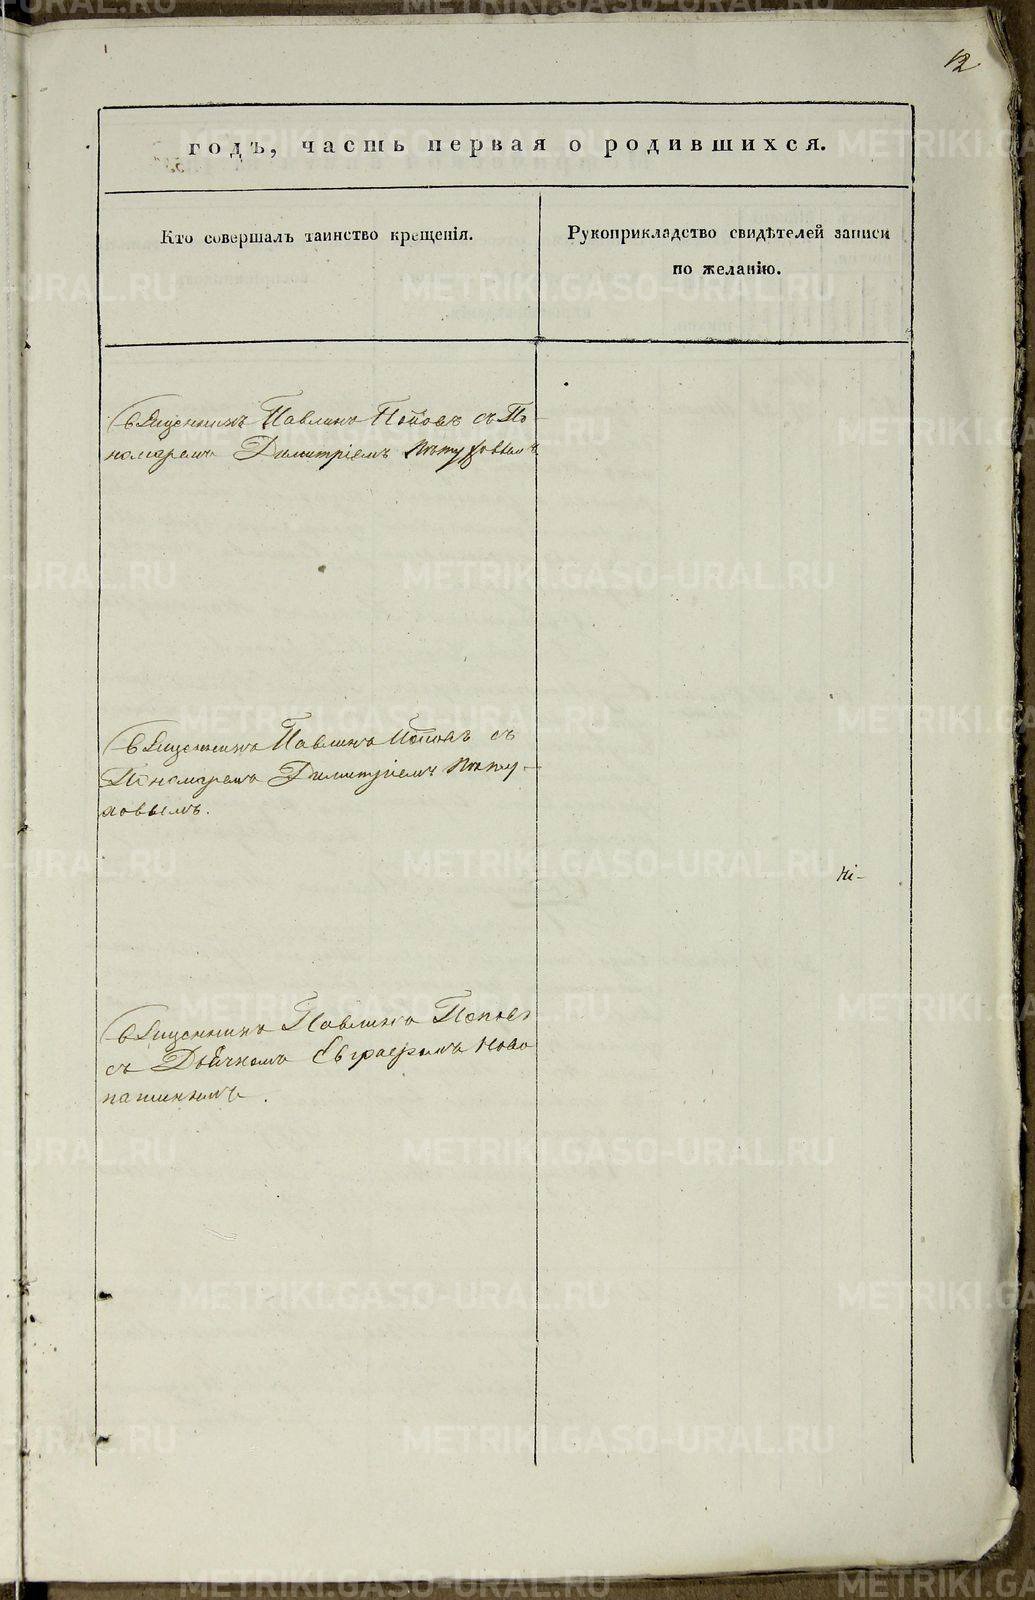 12
годъ, часть первая о родившихся.
Кто совершалъ таинство крещенія.
Рукоприкладство свидѣтелей записи
по желанію.
Священникъ Павлинъ Поповъ съ По-
номаремъ Димитріемъ Пѣтуховымъ
Священникъ Павлинъ Поповъ съ
Пономаремъ Димитріемъ Пѣту-
ховымъ.
Священникъ Павлинъ Поповъ
съ Дьячкомъ Евграфомъ Ново
пашинымъ.
METRIKI.GASO-URAL.RU